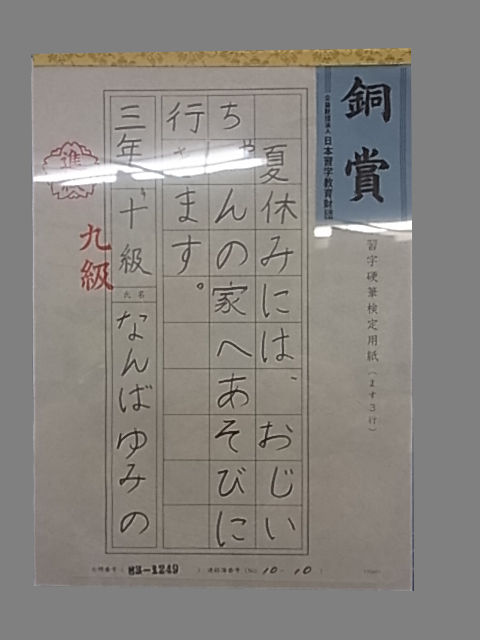 銅賞
公益財団法人 日本習字教育財団
習字硬筆検定用紙（ます3行）
夏休みには、おじい
ちゃんの家へあそびに
行きます。
三年 十級
氏名
なんばゆみの
進級
九級
83-1249
連絡簿番号 (No. 10-10 )